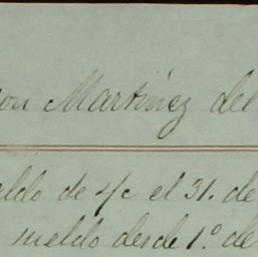 on Martinez del
aldo de 4/c el 31. de
sueldo desde 1º. de